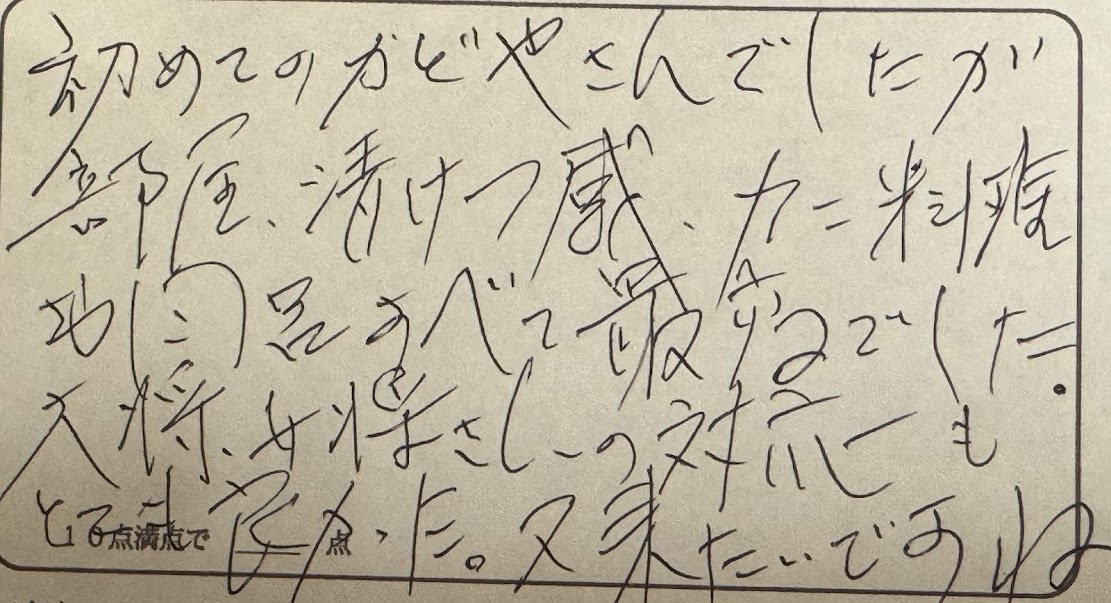 初めてのかどやさんでしたが
部屋、清けつ感、カニ料理
お風呂すべて最高でした。
大将、女将さんの対応も
とても良かった。又来たいですね
10点満点で 点